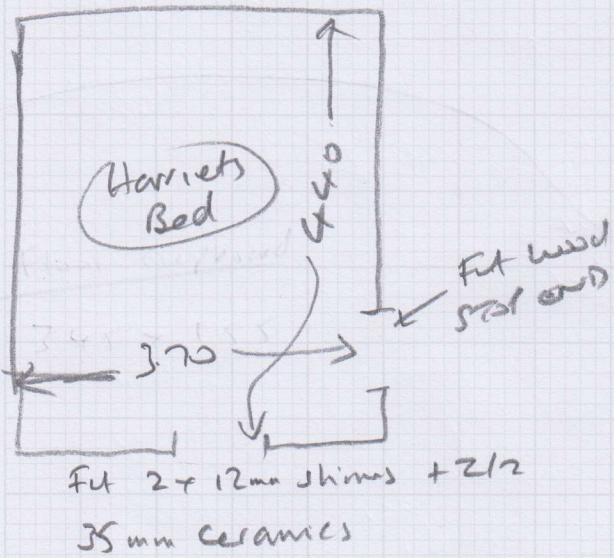 Harriets
Bed
440
Fit wood
END
3.70
Fit 2 + 12mm shims + 2/2
35mm ceramics